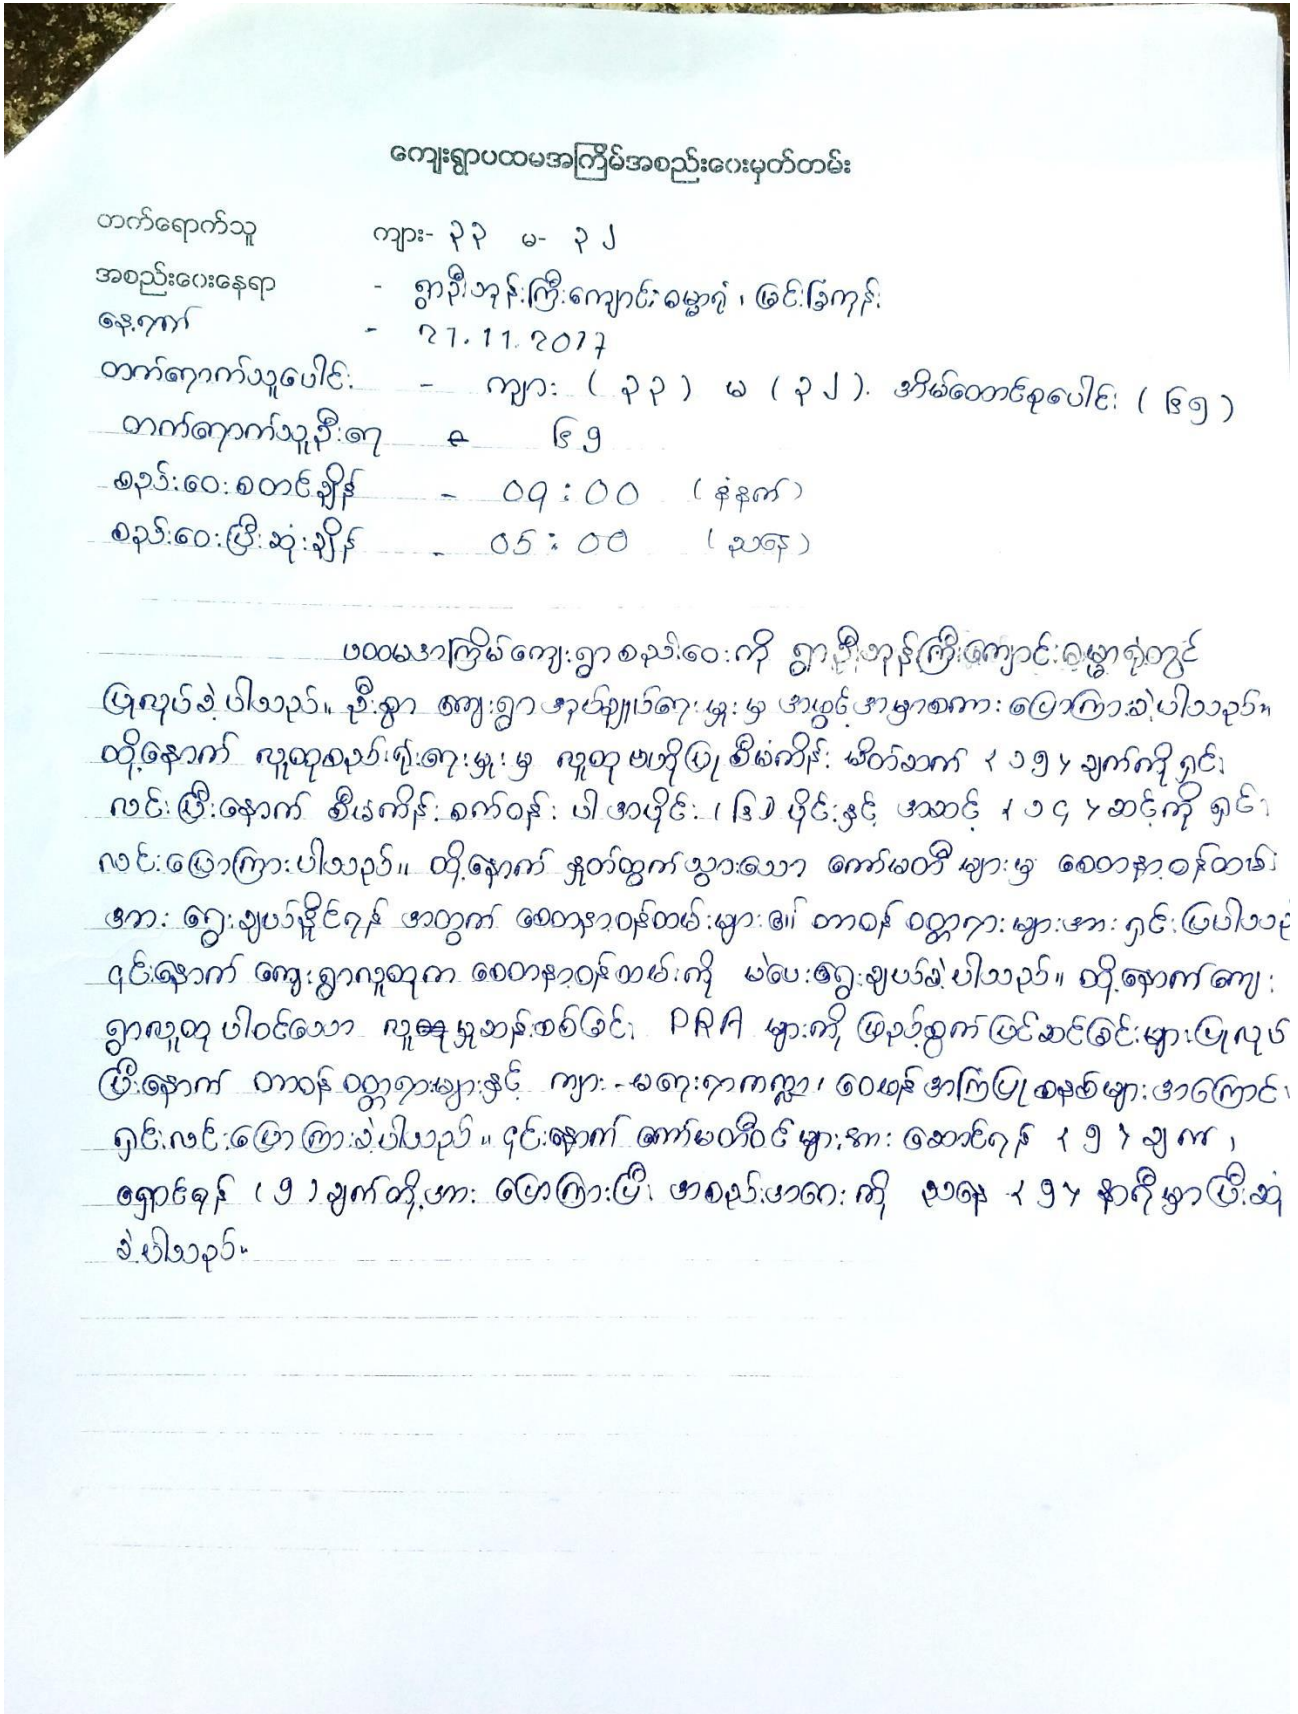 ကျေးရွာပထမအကြိမ်အစည်းဝေးမှတ်တမ်း
တက်ရောက်သူ ကျား- ၃၃ မ- ၃၂
အစည်းဝေးနေရာ - ရွာဦးဘုန်းကြီးကျောင်းဓမ္မာရုံ၊ မြင်းခြံကုန်း
နေ့ရက် - 21.11.2017
တက်ရောက်သူပေါင်း - ကျား (၃၃) မ (၃၂). အိမ်ထောင်စုပေါင်း (၆၅)
တက်ရောက်သူဦးရေ - ၆၅
စည်းဝေးစတင်ချိန် - 09:00 (နံနက်)
စည်းဝေးပြီးဆုံးချိန် - 05:00 (ညနေ)
ပထမအကြိမ်ကျေးရွာစည်းဝေးကို ရွာဦးဘုန်းကြီးကျောင်းဓမ္မာရုံတွင်
ပြုလုပ်ခဲ့ပါသည်။ ဦးစွာ ကျေးရွာအုပ်ချုပ်ရေးမှူးမှ အဖွင့်အမှာစကားပြောကြားခဲ့ပါသည်။
ထို့နောက် လူထုစည်းရုံးရေးမှူးမှ လူထုဗဟိုပြုစီမံကိန်း မိတ်ဆက် {၁၅} ချက်ကို ရှင်း
လင်းပြီးနောက် စီမံကိန်းစက်ဝန်းပါ အပိုင်း (၆) ပိုင်းနှင့် အဆင့် {၁၄} ဆင့်ကို ရှင်း
လင်းပြောကြားပါသည်။ ထို့နောက် နှုတ်ထွက်သွားသော ကော်မတီများမှ စေတနာ့ဝန်ထမ်း
အား ရွေးချယ်နိုင်ရန်အတွက် စေတနာ့ဝန်ထမ်းများ၏ တာဝန်ဝတ္တရားများအား ရှင်းပြပါသည်
၎င်းနောက် ကျေးရွာလူထုက စေတနာ့ဝန်ထမ်းကို မဲပေးရွေးချယ်ခဲ့ပါသည်။ ထို့နောက်ကျေး
ရွာလူထုပါဝင်သော လူမှုဆန်းစစ်ခြင်း PRA များကို ဖြည့်စွက်ပြင်ဆင်ခြင်းများပြုလုပ်
ပြီးနောက် တာဝန်ဝတ္တရားများနှင့် ကျား-မရေးရာကဏ္ဍ၊ ဝေဖန်အကြံပြုစနစ်များအကြောင်း
ရှင်းလင်းပြောကြားခဲ့ပါသည်။ ၎င်းနောက် ကော်မတီဝင်များအား ဆောင်ရန် {၅} ချက်၊
ရှောင်ရန် (၅) ချက်တို့အား ပြောကြားပြီး အစည်းအဝေးကို ညနေ {၅} နာရီမှာပြီးဆုံး
ခဲ့ပါသည်။